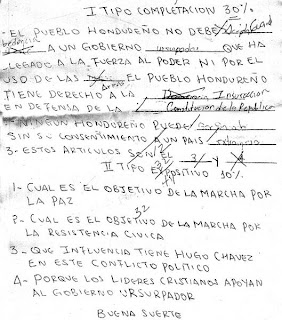 I TIPO COMPLETACIÓN 30%
- EL PUEBLO HONDUREÑO NO DEBE
bediencia A UN GOBIERNO usurpador QUE HA
LLEGADO A LA FUERZA AL PODER NI POR EL
USO DE LAS Armas. EL PUEBLO HONDUREÑO
TIENE DERECHO A LA Insurreccion
EN DEFENSA DE LA Constitucion de la Republica
NINGÚN HONDUREÑO PUEDE
SIN SU CONSENTIMIENTO A UN PAÍS extranjero
3- ESTOS ARTICULOS SON EL 3 Y
II TIPO EXPOSITIVO 10%
1- CUAL ES EL OBJETIVO DE LA MARCHA POR
LA PAZ
2- CUAL ES EL OBJETIVO DE LA MARCHA POR
LA RESISTENCIA CIVICA
3- QUE INFLUENCIA TIENE HUGO CHAVEZ
EN ESTE CONFLICTO POLITICO
4- PORQUE LOS LIDERES CRISTIANOS APOYAN
AL GOBIERNO URSURPADOR
BUENA SUERTE